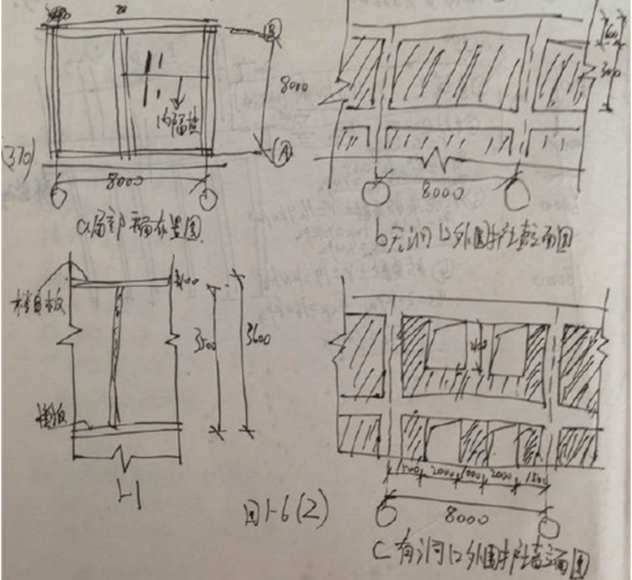 B
8000
内隔墙
(370)
A
8000
a局部平面布置图
600
3000
8000
b无洞口外围护墙立面图
楼面板
100
3500
3600
楼板
1-1
图1-6(2)
1500 2000 1000 2000 1500
8000
c有洞口外围护墙立面图